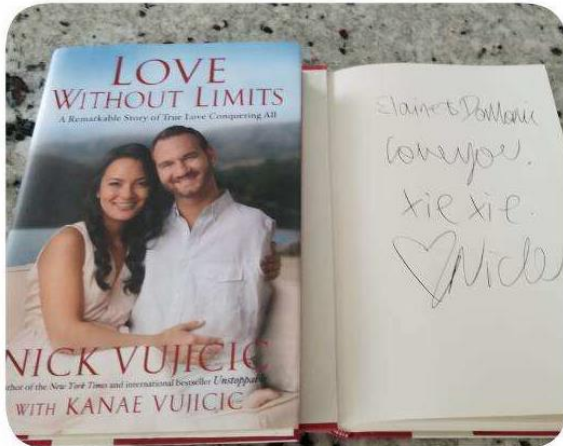 LOVE
WITHOUT LIMITS
A Remarkable Story of True Love Conquering All
NICK VUJICIC
thor of the New York Times and international bestseller Unstoppab
WITH KANAE VUJICIC
Love you.
xie xie.
♡ Nick